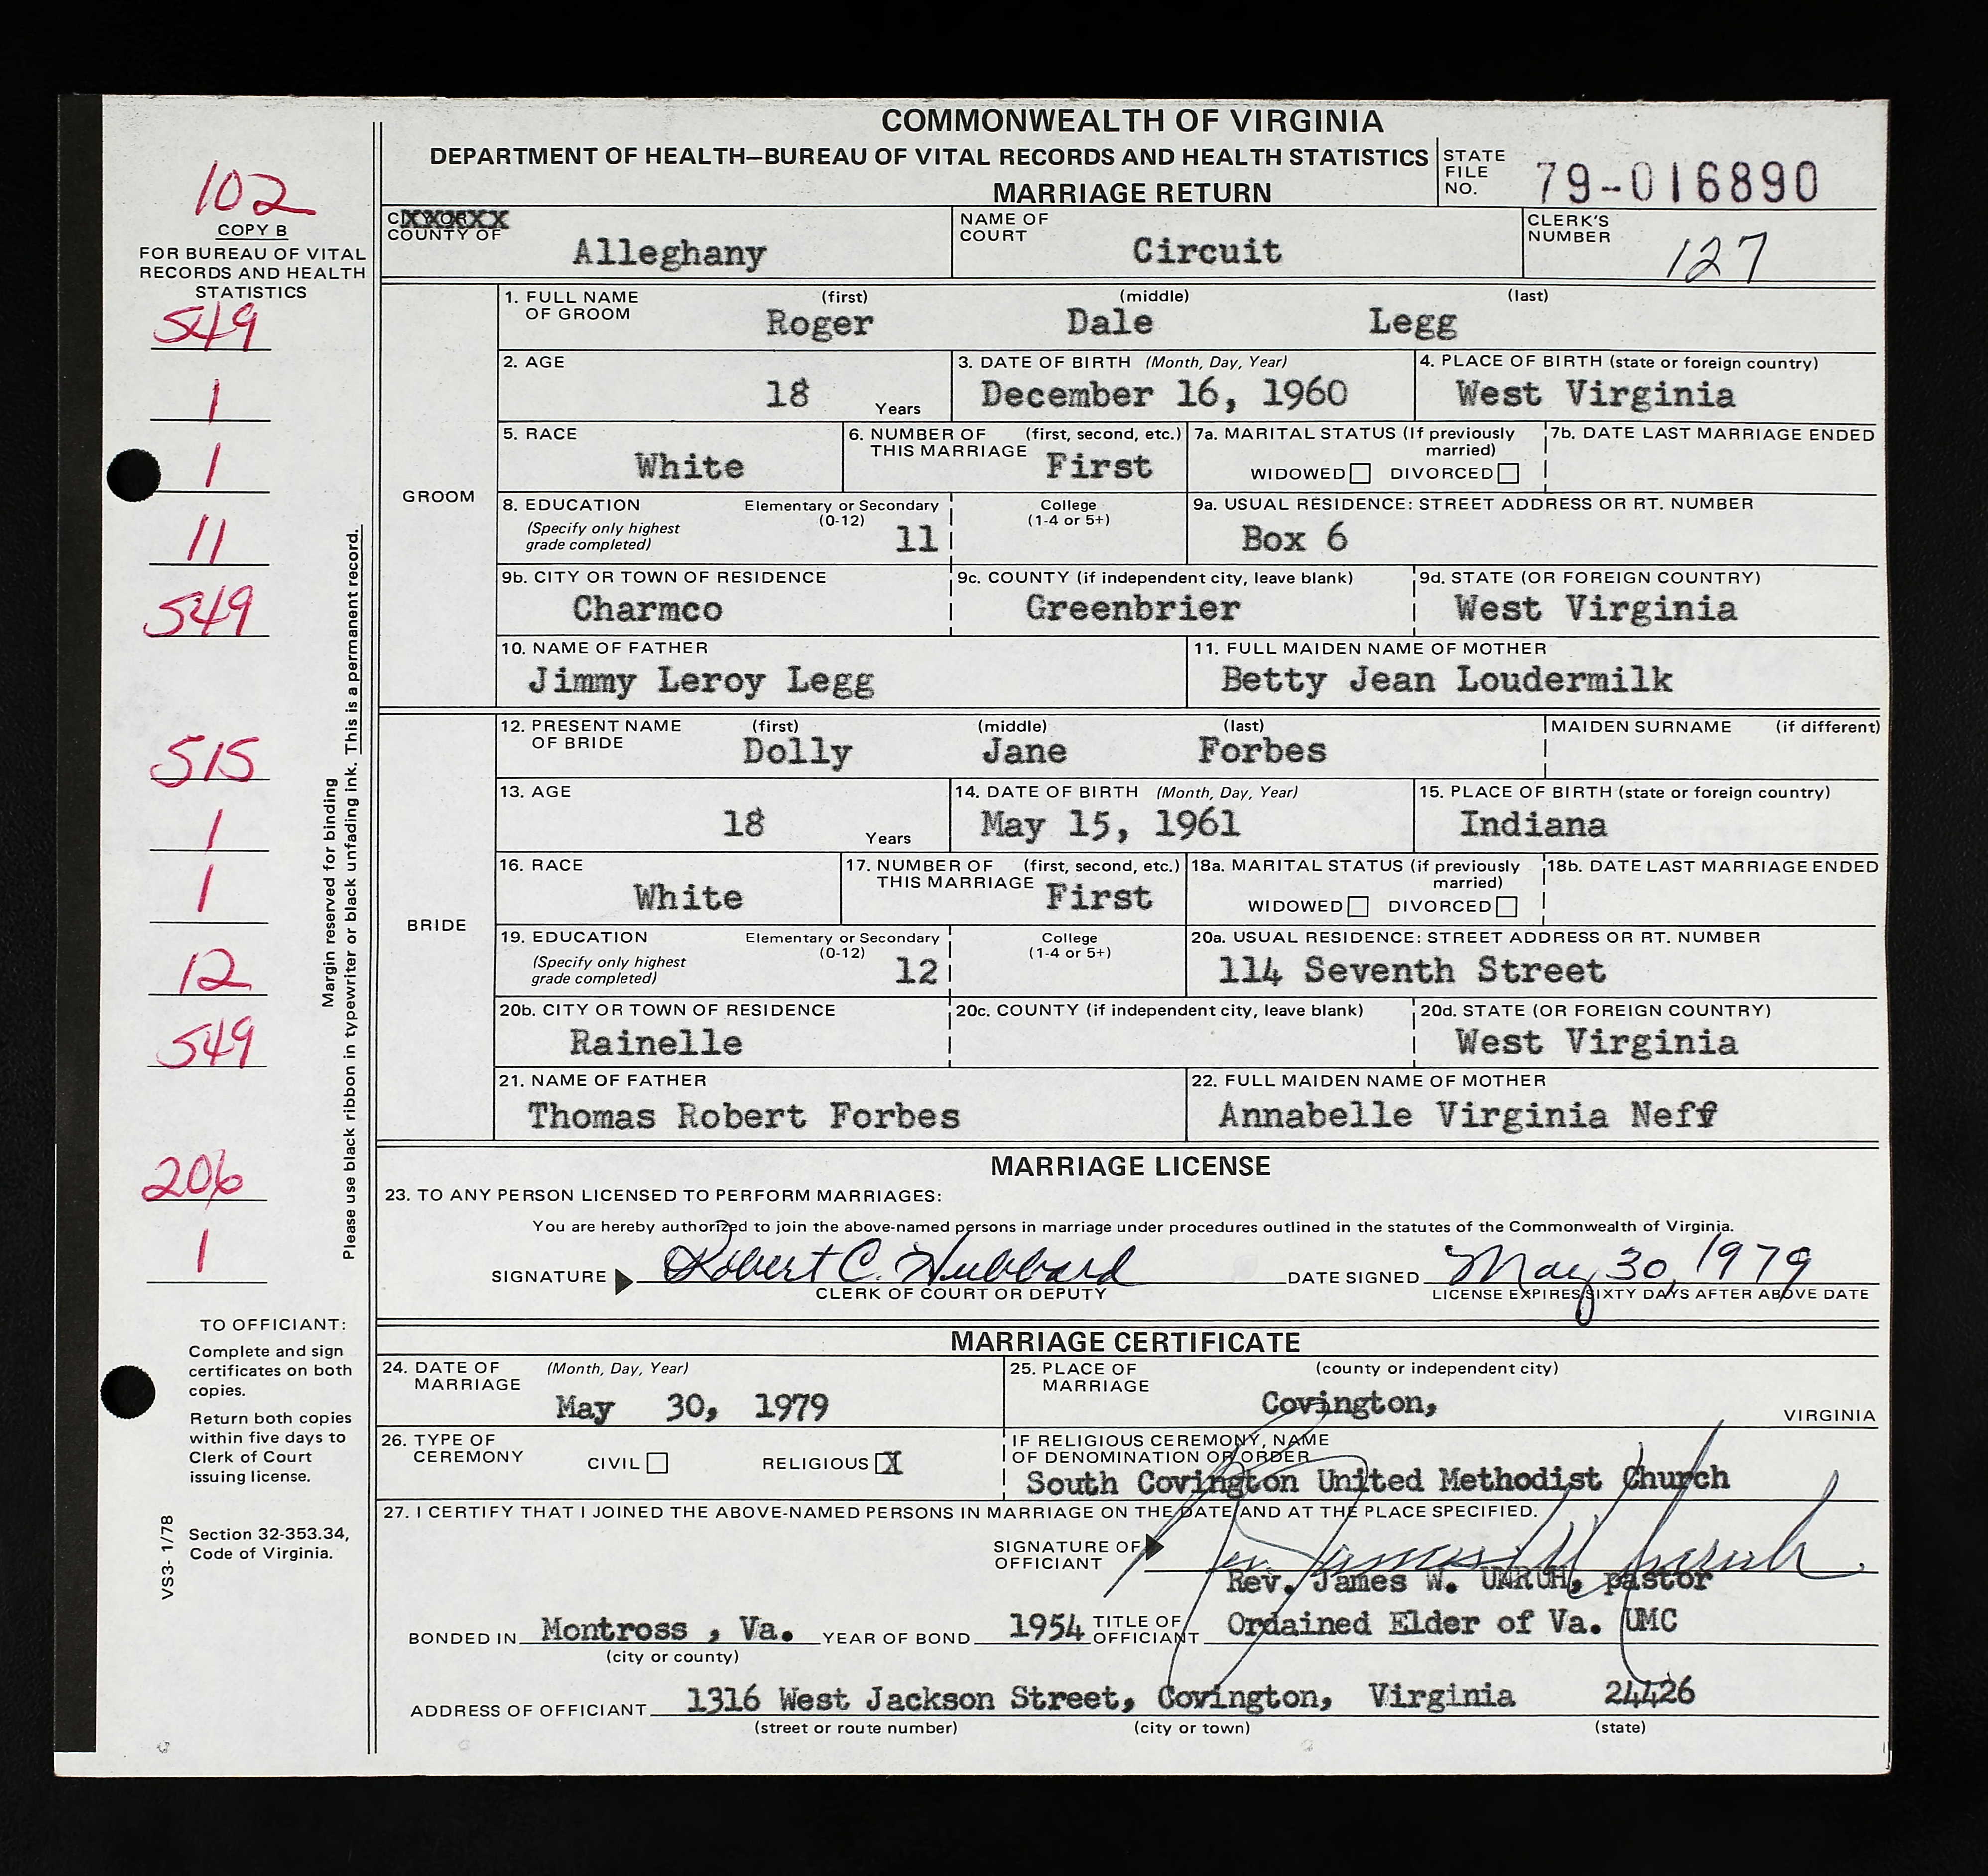 COMMONWEALTH OF VIRGINIA
DEPARTMENT OF HEALTH—BUREAU OF VITAL RECORDS AND HEALTH STATISTICS
MARRIAGE RETURN
STATE FILE NO. 79-016890
102
COPY B
FOR BUREAU OF VITAL
RECORDS AND HEALTH
STATISTICS
549
1
1
11
549
515
1
1
12
549
206
1
Margin reserved for binding
Please use black ribbon in typewriter or black unfading ink. This is a permanent record.
TO OFFICIANT:
Complete and sign
certificates on both
copies.
Return both copies
within five days to
Clerk of Court
issuing license.
Section 32-353.34,
Code of Virginia.
VS3- 1/78
COUNTY OF Alleghany
NAME OF COURT Circuit
CLERK'S NUMBER 127
GROOM
1. FULL NAME OF GROOM (first) Roger (middle) Dale (last) Legg
2. AGE 18 Years
3. DATE OF BIRTH (Month, Day, Year) December 16, 1960
4. PLACE OF BIRTH (state or foreign country) West Virginia
5. RACE White
6. NUMBER OF THIS MARRIAGE (first, second, etc.) First
7a. MARITAL STATUS (If previously married) WIDOWED DIVORCED
7b. DATE LAST MARRIAGE ENDED
8. EDUCATION (Specify only highest grade completed) Elementary or Secondary (0-12) 11 College (1-4 or 5+)
9a. USUAL RESIDENCE: STREET ADDRESS OR RT. NUMBER Box 6
9b. CITY OR TOWN OF RESIDENCE Charmco
9c. COUNTY (if independent city, leave blank) Greenbrier
9d. STATE (OR FOREIGN COUNTRY) West Virginia
10. NAME OF FATHER Jimmy Leroy Legg
11. FULL MAIDEN NAME OF MOTHER Betty Jean Loudermilk
BRIDE
12. PRESENT NAME OF BRIDE (first) Dolly (middle) Jane (last) Forbes
MAIDEN SURNAME (if different)
13. AGE 18 Years
14. DATE OF BIRTH (Month, Day, Year) May 15, 1961
15. PLACE OF BIRTH (state or foreign country) Indiana
16. RACE White
17. NUMBER OF THIS MARRIAGE (first, second, etc.) First
18a. MARITAL STATUS (if previously married) WIDOWED DIVORCED
18b. DATE LAST MARRIAGE ENDED
19. EDUCATION (Specify only highest grade completed) Elementary or Secondary (0-12) 12 College (1-4 or 5+)
20a. USUAL RESIDENCE: STREET ADDRESS OR RT. NUMBER 114 Seventh Street
20b. CITY OR TOWN OF RESIDENCE Rainelle
20c. COUNTY (if independent city, leave blank)
20d. STATE (OR FOREIGN COUNTRY) West Virginia
21. NAME OF FATHER Thomas Robert Forbes
22. FULL MAIDEN NAME OF MOTHER Annabelle Virginia Neff
MARRIAGE LICENSE
23. TO ANY PERSON LICENSED TO PERFORM MARRIAGES:
You are hereby authorized to join the above-named persons in marriage under procedures outlined in the statutes of the Commonwealth of Virginia.
SIGNATURE Robert C. Hubbard DATE SIGNED May 30, 1979
CLERK OF COURT OR DEPUTY LICENSE EXPIRES SIXTY DAYS AFTER ABOVE DATE
MARRIAGE CERTIFICATE
24. DATE OF MARRIAGE (Month, Day, Year) May 30, 1979
25. PLACE OF MARRIAGE (county or independent city) Covington, VIRGINIA
26. TYPE OF CEREMONY CIVIL RELIGIOUS X
IF RELIGIOUS CEREMONY, NAME OF DENOMINATION OR ORDER South Covington United Methodist Church
27. I CERTIFY THAT I JOINED THE ABOVE-NAMED PERSONS IN MARRIAGE ON THE DATE AND AT THE PLACE SPECIFIED.
SIGNATURE OF OFFICIANT
Rev. James W. UNRUH, pastor
BONDED IN Montross , Va. YEAR OF BOND 1954 TITLE OF OFFICIANT Ordained Elder of Va. UMC
(city or county)
ADDRESS OF OFFICIANT 1316 West Jackson Street, Covington, Virginia 24426
(street or route number) (city or town) (state)